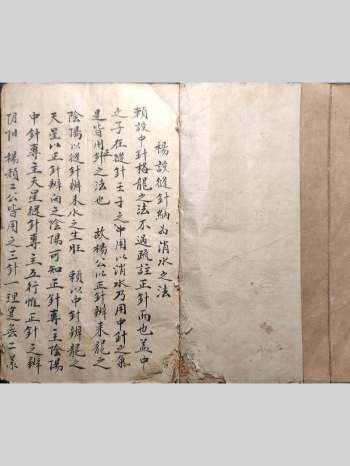 楊設縫針納為消水之法
賴設中針格龍之法不過疏註正針而也盖中
之子在縫針壬子之中用以消水乃用中針之氣
是皆用針之法也 故楊公以正針辨來龍之
陰陽以縫針辨來水之生旺 賴以中針辨龍之
天星以正針辨向之陰陽可知正針專主陰陽
中針專主天星縫針專主五行惟正針之辨
陰陽楊賴二公皆用之三針一理建矣二景